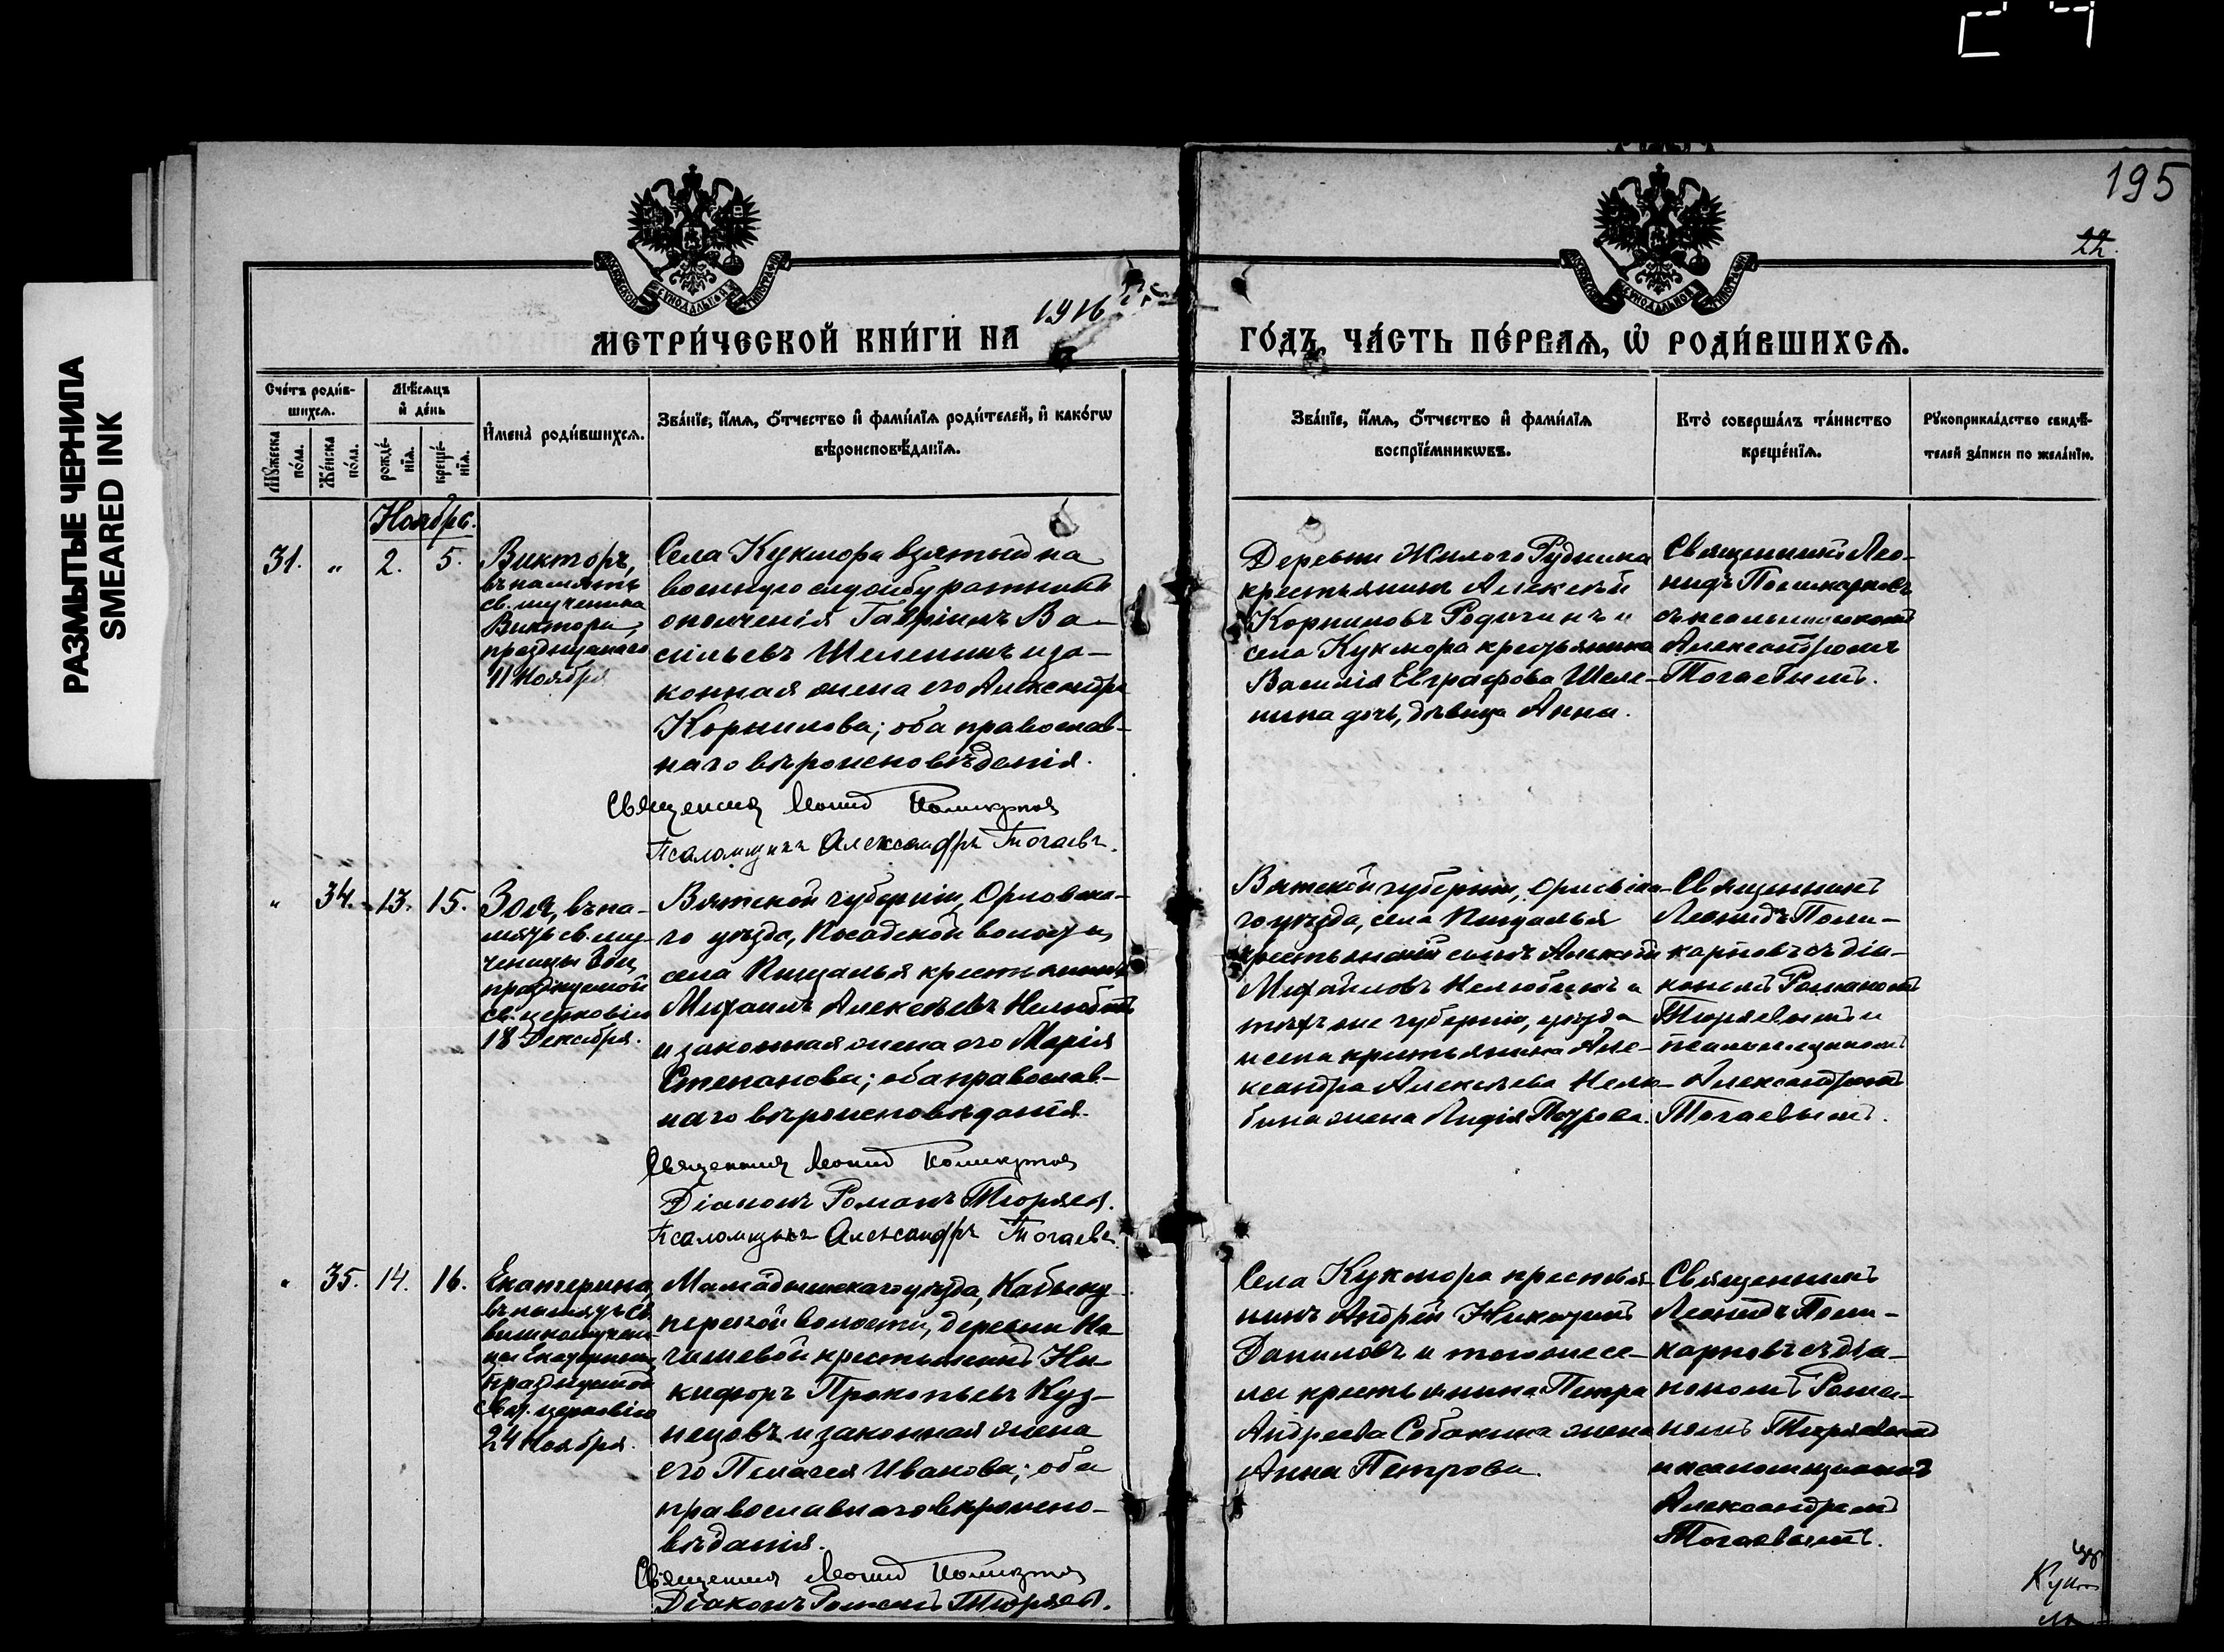 РАЗМЫТЫЕ ЧЕРНИЛА
SMEARED INK
195
22.
МЕТРИ́ЧЕСКОЙ КНИ́ГИ НА 1916
ГО́ДЪ, ЧА́СТЬ ПЕ́РВАѦ, Ѡ҆ РОДИ́ВШИХСѦ.
Сче́тъ роди́в-
шихсѧ.
Мꙋ́жеска по́ла.
Же́нска по́ла.
Мѣ́сѧцъ
и҆ де́нь
рожде́-
нїѧ.
креще́-
нїѧ.
И҆мена̀ роди́вшихсѧ.
Зва́нїе, и҆́мѧ, ѻ҆́тчество и҆ фами́лїѧ роди́телей, и҆ како́гѡ
вѣроисповѣ́данїѧ.
Зва́нїе, и҆́мѧ, ѻ҆́тчество и҆ фами́лїѧ
воспрїе́мникѡвъ.
Кто̀ соверша́лъ та́инство
креще́нїѧ.
Рꙋкоприкла́дство свидѣ́-
телей за́писи по жела́нїю.
Ноябрь.
31. „ 2. 5.
Викторъ,
въ память
св. мученика
Виктора,
празднуемаго
11 Ноября
Села Кукмора взятый на
военную службу ратникъ
ополченія Гавріилъ Ва-
сильевъ Шеленинъ и за-
конная жена его Александра
Корнилова; оба православ-
наго вѣроисповѣданія.
Священникъ Леонид Поликарпов
Псаломщикъ Александръ Тогаевъ.
Деревни Жилого Рудника
крестьянинъ Алексѣй
Корниловъ Родигинъ и
села Кукмора крестьянина
Василія Евграфова Шеле-
нина дочь, дѣвица Анна.
Священникъ Лео-
нидъ Поликарповъ
съ псаломщикомъ
Александромъ
Тогаевымъ.
„ 34. 13. 15.
Зоя, въ па-
мять св. му-
ченицы Зои,
празднуемой
св. церковію
18 Декабря.
Вятской губерніи, Орловска-
го уѣзда, Посадской волости,
села Пищалья крестьянинъ
Михаилъ Алексѣевъ Нелюбинъ
и законная жена его Марія
Степанова; оба православ-
наго вѣроисповѣданія.
Священникъ Леонид Поликарпов
Діаконъ Романъ Тюряев.
Псаломщикъ Александръ Тогаевъ.
Вятской губерніи, Орловска-
го уѣзда, села Пищалья
крестьянскій сынъ Алексѣй
Михайловъ Нелюбинъ и
тѣхъ же губерніи, уѣзда
и села крестьянина Але-
ксандра Алексѣева Нелю-
бина жена Лидія Петрова.
Священникъ
Леонидъ Поли-
карповъ съ діа-
кономъ Романомъ
Тюряевымъ и
псаломщикомъ
Александромъ
Тогаевымъ.
„ 35. 14. 16.
Екатерина,
въ память св.
великомучени-
цы Екатерины,
празднуемой
св. церковію
24 Ноября.
Мамадышскаго уѣзда, Кабыку
перской волости, деревни
крестьянинъ Ни-
кифоръ Прокопьевъ Куз-
нецовъ и законная жена
его Пелагея Иванова; оба
православнаго вѣроиспо-
вѣданія.
Священникъ Леонид Поликарпов
Діаконъ Романъ Тюряев.
Села Кукмора крестья-
нинъ Андрей
Даниловъ и того же се-
ла крестьянина Петра
Андреева Собакина жена
Анна Петрова.
Священникъ
Леонидъ Поли-
карповъ съ діа-
кономъ Рома-
номъ Тюряевымъ
и псаломщикомъ
Александромъ
Тогаевымъ.